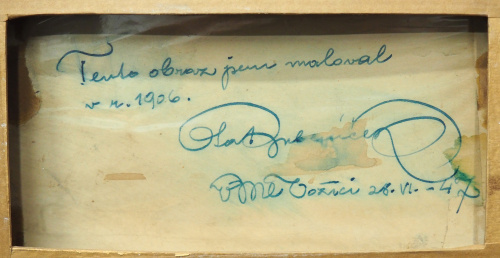 Tento obraz jsem maloval
v r. 1906.
Ota Bubeníček
V Ml. Vožici 28.VI. - 47